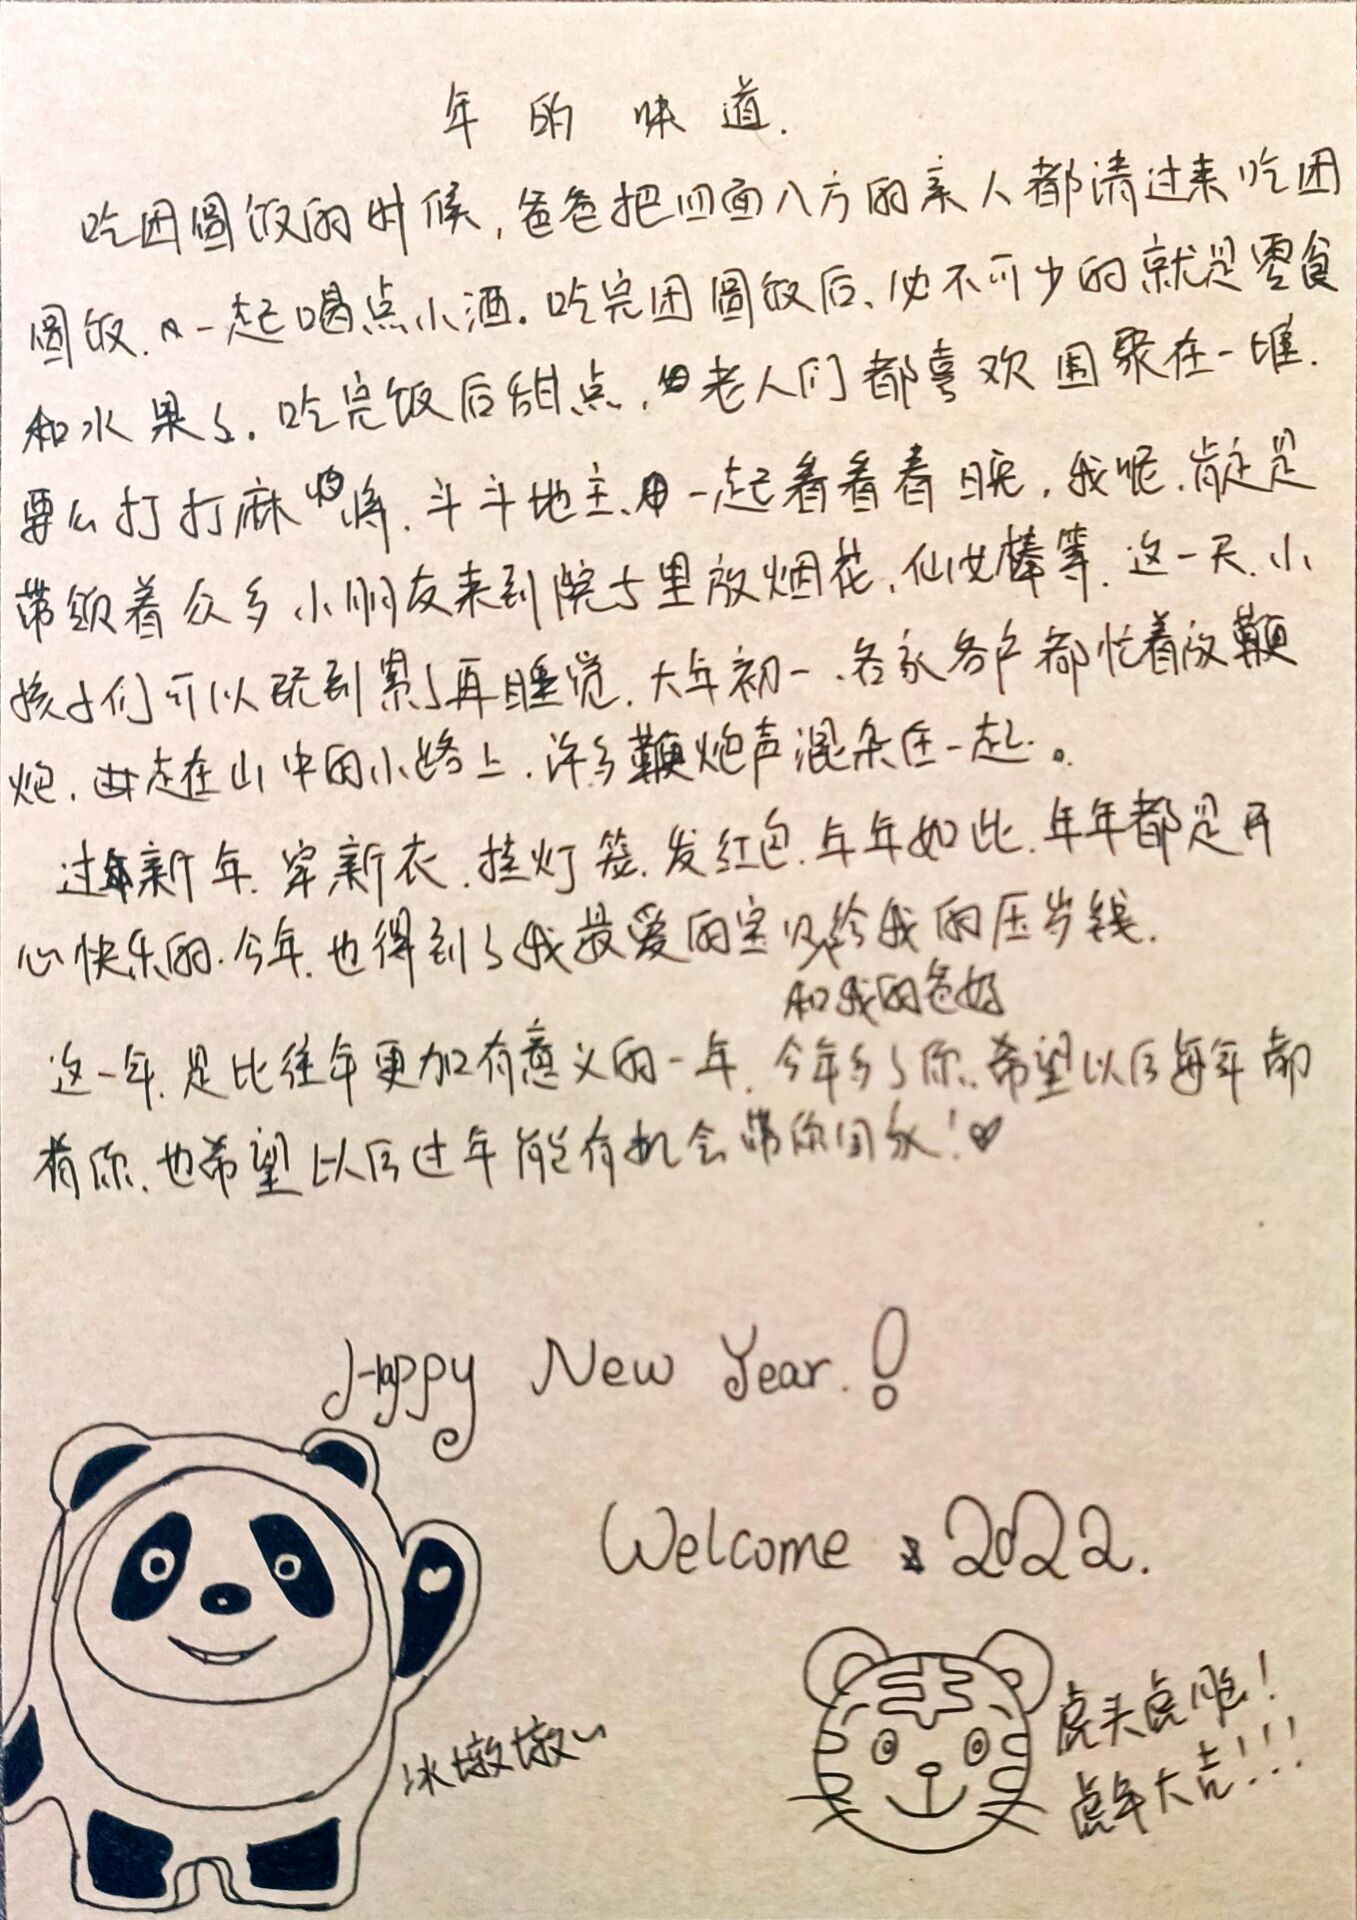 年的味道.
吃团圆饭的时候,爸爸把四面八方的亲人都请过来吃团
圆饭.一起喝点小酒.吃完团圆饭后、必不可少的就是零食
和水果了.吃完饭后甜点,老人们都喜欢围聚在一堆.
要么打打麻将.斗斗地主、一起看看春晚,我呢.肯定是
带领着众多小朋友来到院子里放烟花,仙女棒等.这一天.小
孩子们可以玩到累了再睡觉.大年初一.各家各户都忙着放鞭
炮.走在山中的小路上.许多鞭炮声混杂在一起。
过新年.穿新衣.挂灯笼.发红包.年年如此.年年都是开
心快乐的.今年.也得到了我最爱的宝贝给我的压岁钱.
和我的爸妈
这一年.是比往年更加有意义的一年.今年多了你.希望以后每年都
有你.也希望以后过年能有机会带你回家!♥
Happy New Year.!
Welcome 2022.
冰墩墩~
虎头虎脑!
虎年大吉!!!